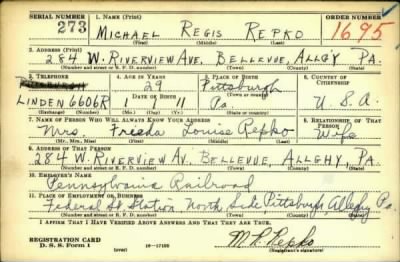 SERIAL NUMBER 1. NAME (Print) ORDER NUMBER
273 MICHAEL REGIS REPKO 1695
(First) (Middle) (Last)
2. ADDRESS (Print)
284 W. RIVERVIEW AVE. BELLEVUE, ALLG'Y PA.
(Number and street or R. F. D. number) (Town) (County) (State)
3. TELEPHONE 4. AGE IN YEARS 5. PLACE OF BIRTH 6. COUNTRY OF CITIZENSHIP
29 Pittsburgh
LINDEN 6606R DATE OF BIRTH
1 11 Pa. U.S.A.
(Exchange) (Number) (Mo.) (Day) (Yr.) (State or country)
7. NAME OF PERSON WHO WILL ALWAYS KNOW YOUR ADDRESS 8. RELATIONSHIP OF THAT PERSON
Mrs. Frieda Louise Repko Wife
(Mr., Mrs., Miss) (First) (Middle) (Last)
9. ADDRESS OF THAT PERSON
284 W. RIVERVIEW AV. BELLEVUE, ALLGHY, PA.
(Number and street or R. F. D. number) (Town) (County) (State)
10. EMPLOYER'S NAME
Pennsylvania Railroad
11. PLACE OF EMPLOYMENT OR BUSINESS
Federal St. Station, North Side, Pittsburgh, Alleghy Pa.
(Number and street or R. F. D. number) (Town) (County) (State)
I AFFIRM THAT I HAVE VERIFIED ABOVE ANSWERS AND THAT THEY ARE TRUE.
REGISTRATION CARD
D. S. S. Form 1 (over) 16-17105 M. R. Repko
(Registrant's signature)